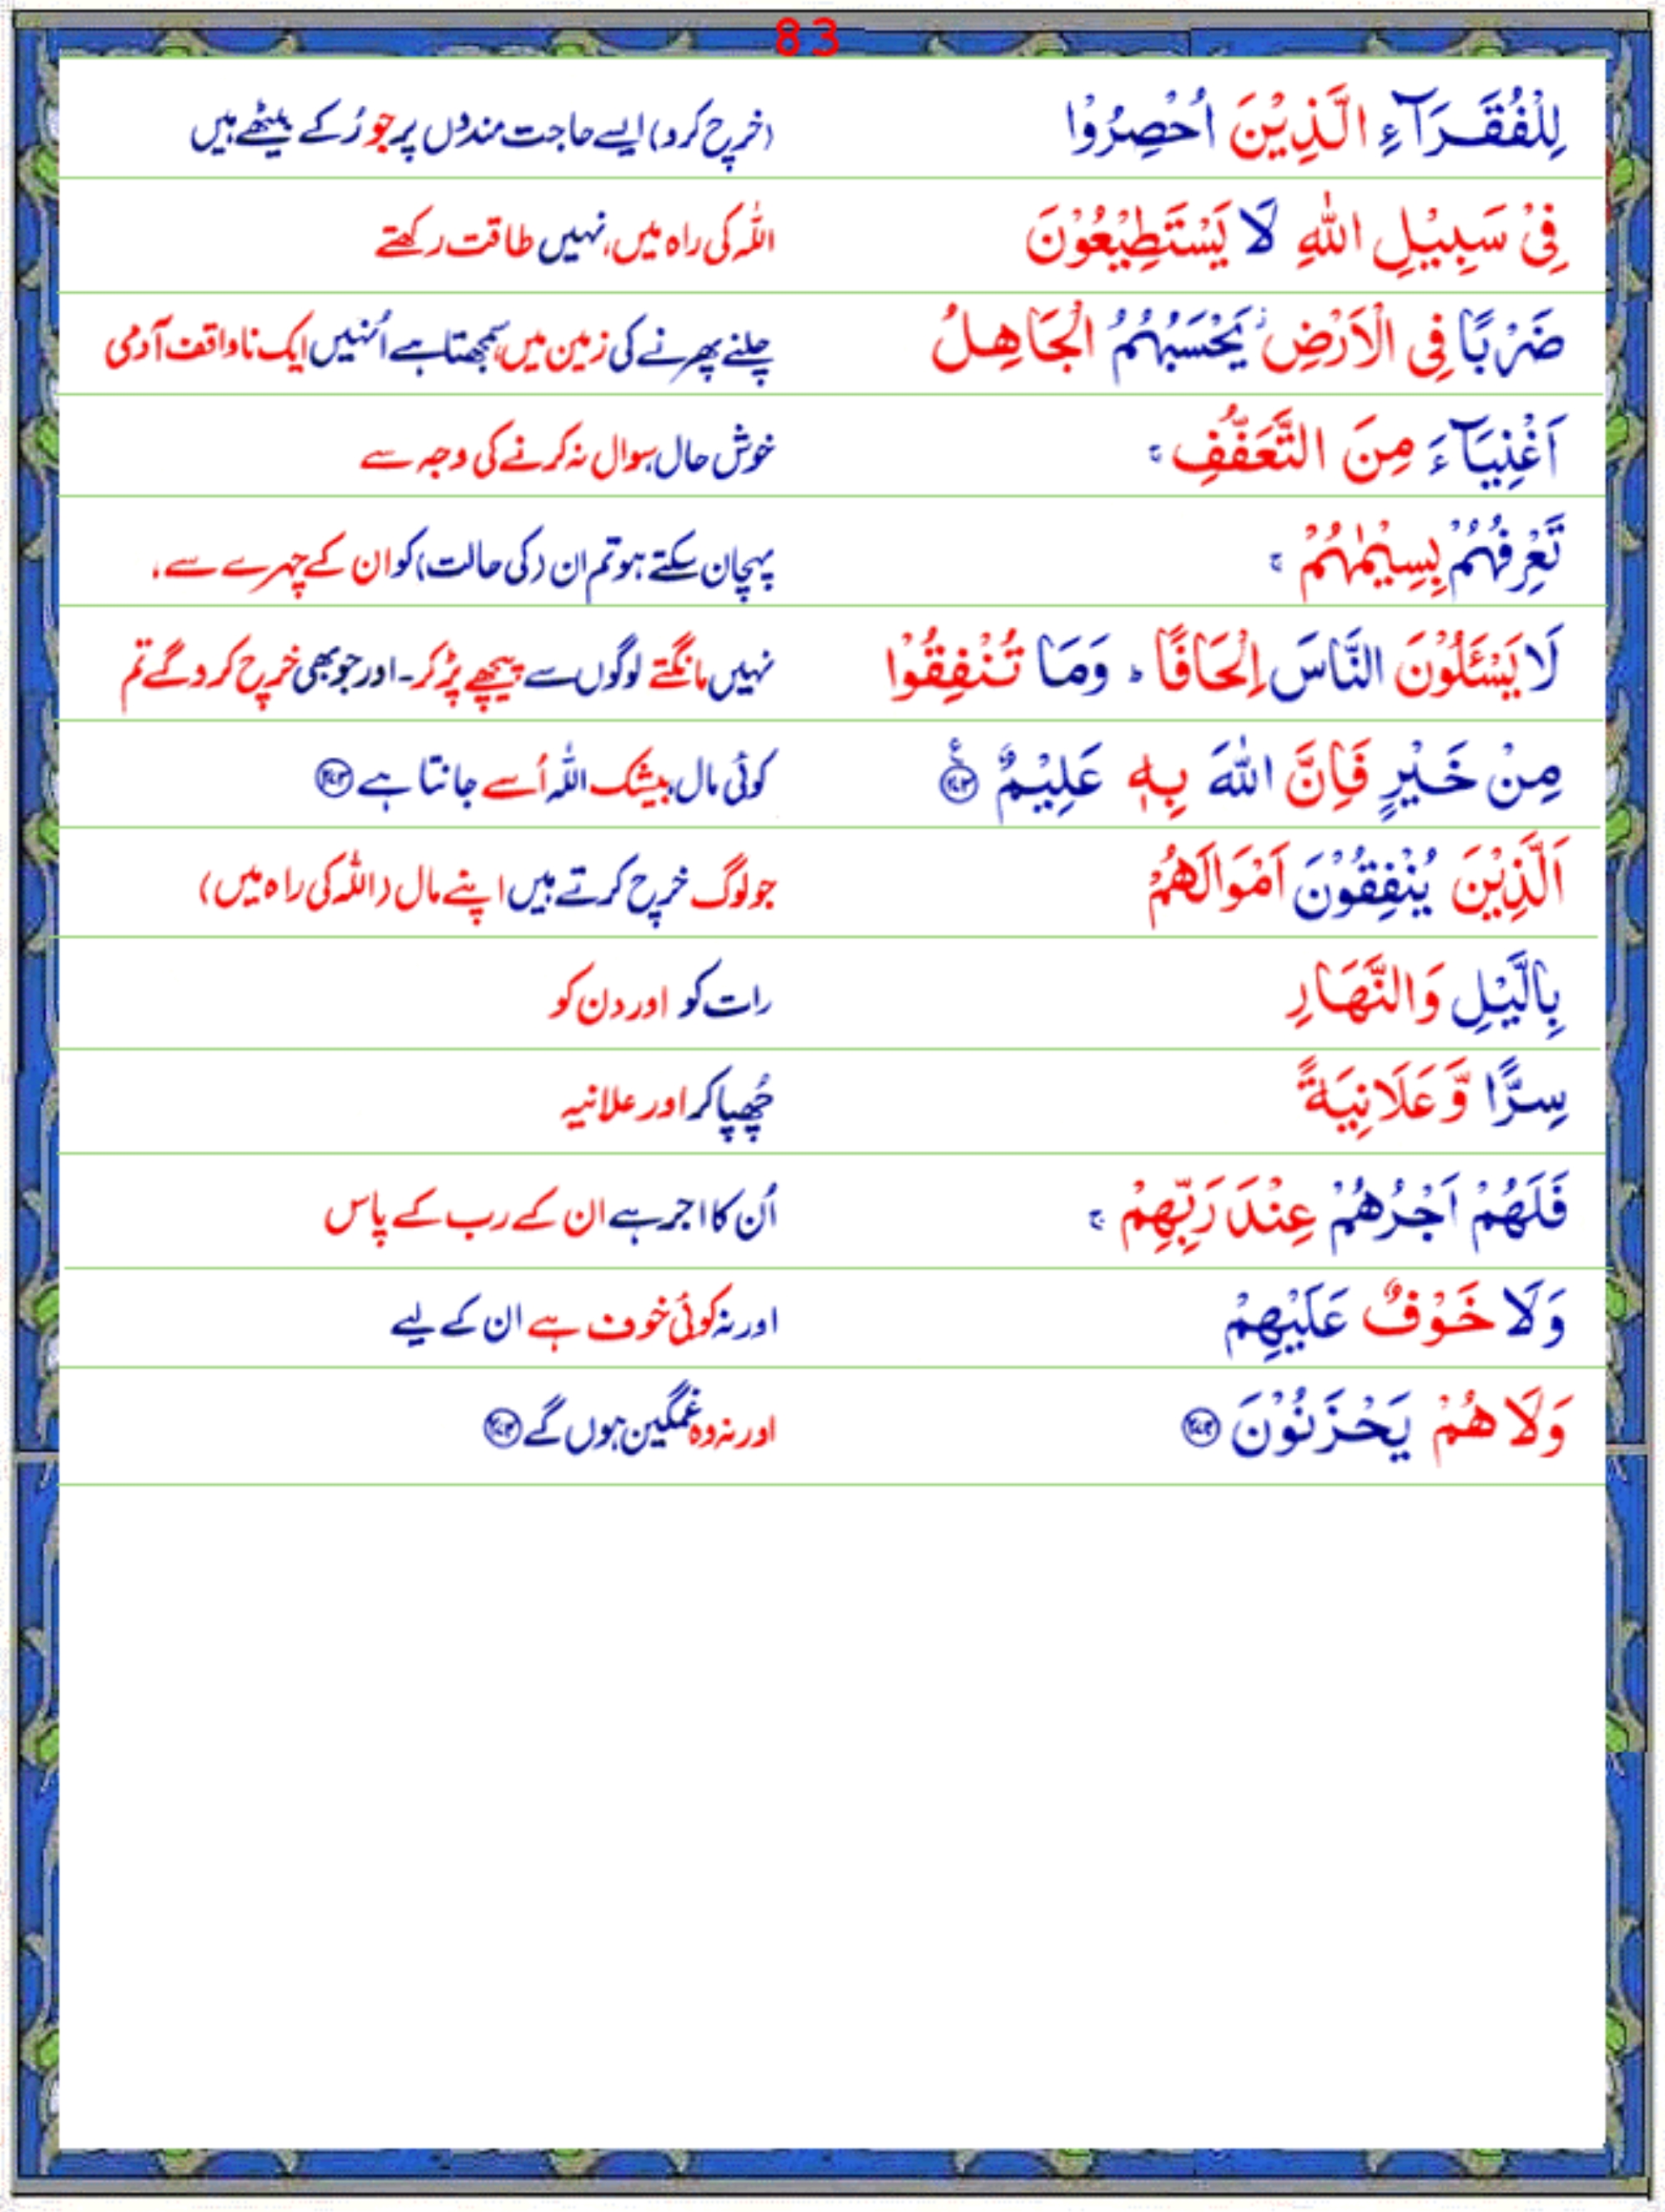 83
لِلْفُقَـرَآءِ الَّذِيْنَ اُحْصِرُوْا (خرچ کرو) ایسے حاجت مندوں پر جو رُکے بیٹھے ہیں
فِىْ سَبِيْلِ اللّٰهِ لَا يَسْتَطِيْعُوْنَ اللّٰہ کی راہ میں، نہیں طاقت رکھتے
ضَرْبًا فِى الْاَرْضِ ز يَحْسَبُهُمُ الْجَاهِلُ چلنے پھرنے کی زمین میں، سمجھتا ہے اُنہیں ایک ناواقف آدمی
اَغْنِيَآءَ مِنَ التَّعَفُّفِ ۚ خوش حال، سوال نہ کرنے کی وجہ سے
تَعْرِفُهُمْ بِسِيْمٰهُمْ ۚ پہچان سکتے ہو تم ان (کی حالت) کو ان کے چہرے سے،
لَا يَسْـَٔلُوْنَ النَّاسَ اِلْحَافًا ؕ وَمَا تُنْفِقُوْا نہیں مانگتے لوگوں سے پیچھے پڑ کر۔ اور جو بھی خرچ کرو گے تم
مِنْ خَيْرٍ فَاِنَّ اللّٰهَ بِهٖ عَلِيْمٌ ۧ ﴿۲۷۳﴾ کوئی مال، بیشک اللّٰہ اُسے جانتا ہے ﴿۲۷۳﴾
اَلَّذِيْنَ يُنْفِقُوْنَ اَمْوَالَهُمْ جو لوگ خرچ کرتے ہیں اپنے مال (اللّٰہ کی راہ میں)
بِالَّيْلِ وَالنَّهَارِ رات کو اور دن کو
سِرًّا وَّعَلَانِيَةً چُھپا کر اور علانیہ
فَلَهُمْ اَجْرُهُمْ عِنْدَ رَبِّهِمْ ۚ اُن کا اجر ہے ان کے رب کے پاس
وَلَا خَوْفٌ عَلَيْهِمْ اور نہ کوئی خوف ہے ان کے لیے
وَلَا هُمْ يَحْزَنُوْنَ ﴿۲۷۴﴾ اور نہ وہ غمگین ہوں گے ﴿۲۷۴﴾